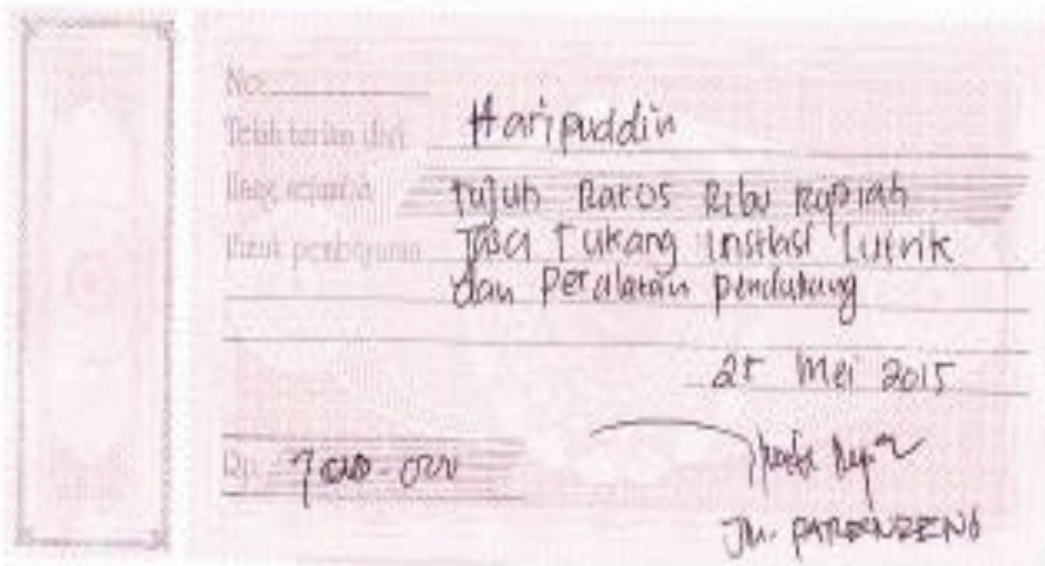 No.
Telah terima dari Haripuddin
Uang sejumlah Tujuh Ratus Ribu Rupiah
Untuk pembayaran Jasa Tukang Instlasi Listrik
dan Peralatan pendukung
25 Mei 2015
Rp. 700.000